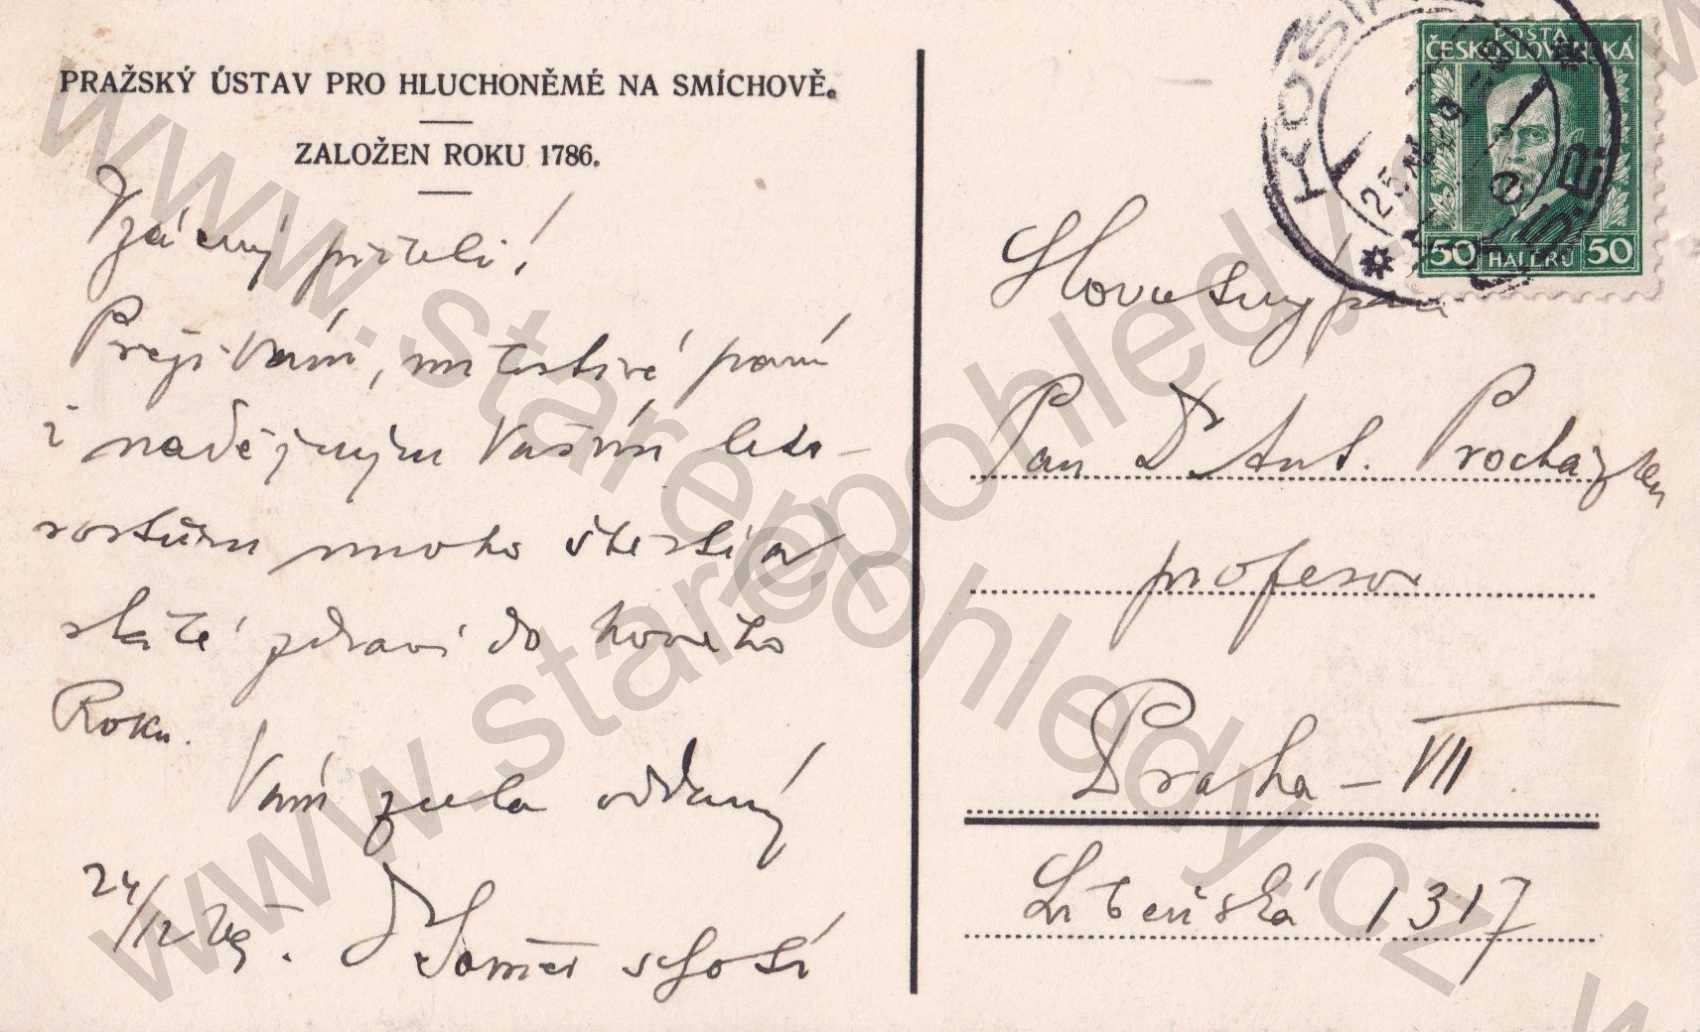 PRAŽSKÝ ÚSTAV PRO HLUCHONĚMÉ NA SMÍCHOVĚ.
ZALOŽEN ROKU 1786.
Vzácný příteli!
Přeji Vám, milostivé paní
i nadějným Vašim leto-
rostům mnoho štěstí a
stálé zdraví do nového
Roku.
Vám zcela oddaný
24/12
POŠTA
ČESKOSLOVENSKÁ
50 HALÉŘŮ 50
KOŠÍŘE
Slovutný pan
Pan Dr. Ant. Procházka
profesor
Praha – VII
Letenská 1317
www.starepohledy.cz
www.starepohledy.cz